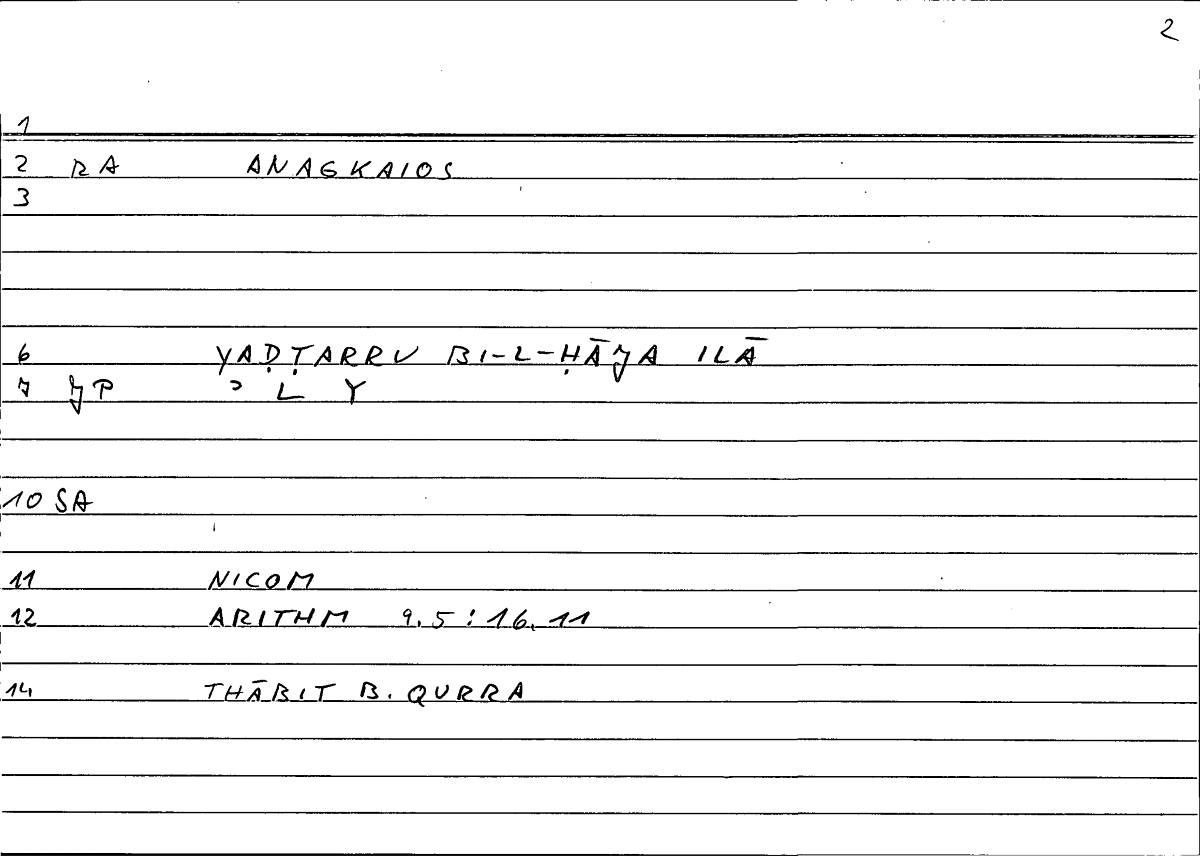 2
1
2 RA ANAGKAIOS
3
6 YAḌṬARRU BI-L-ḤĀJA ILĀ
7 JP ʾ L Y
10 SA
11 NICOM
12 ARITHM 9.5 : 16.11
14 THĀBIT B. QURRA